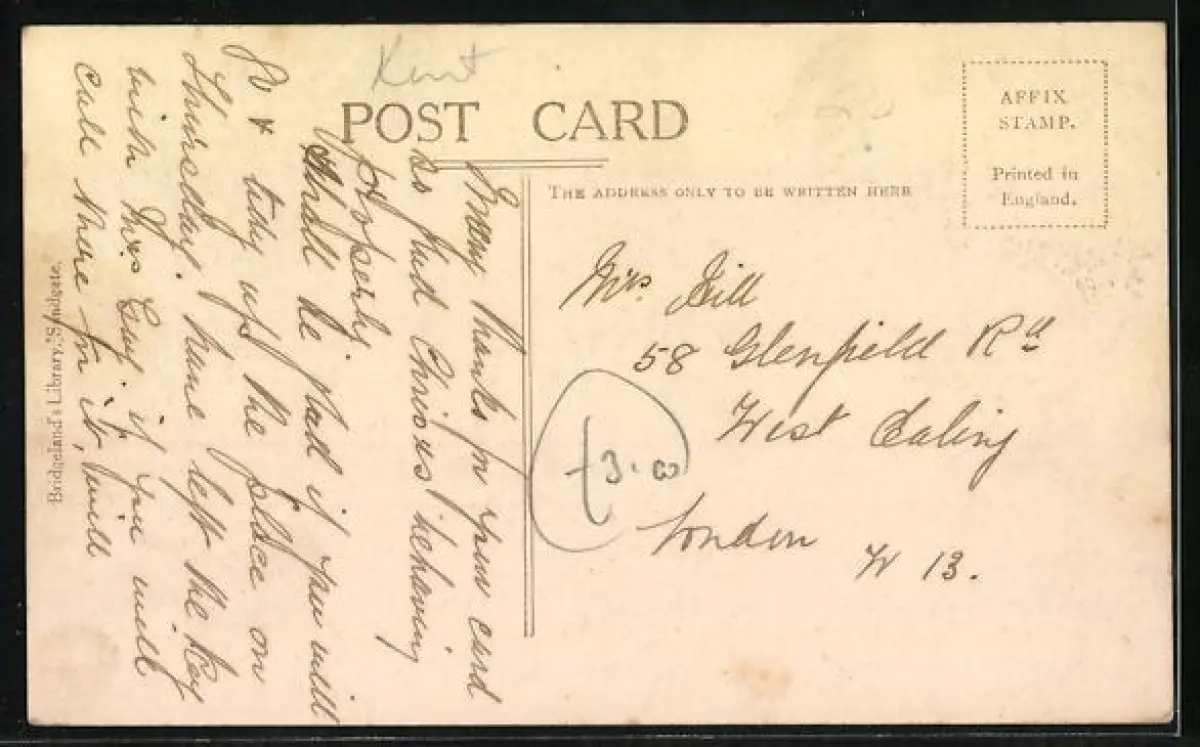 Kent
POST CARD
AFFIX
STAMP.
Printed in
England.
THE ADDRESS ONLY TO BE WRITTEN HERE
Many thanks for your card
so glad Chriss behaving
properly.
Shall be glad if you will
go & tidy up the place on
Thursday. have left the key
with Mrs if you will
call there for it, will
Mrs. Gill
58 Glenfield Rd
West Ealing
London W 13.
£3.00
Bridgeland's Library, Sandgate.